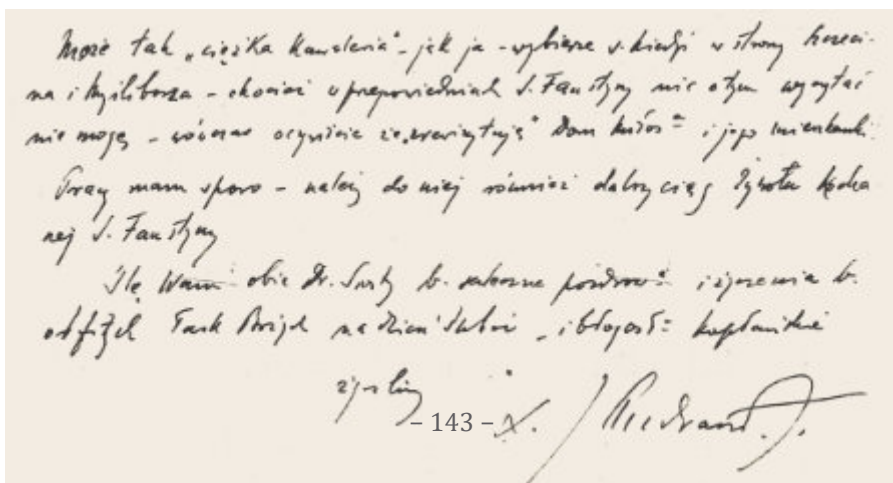 Może tak „ciężka kawaleria" – jak ja – wybierze s. kiedyś w strony Szczeci-
na i Myśliborza – chociaż w przepowiedniach S. Faustyny nic o tym wyczytać
nie mogę – wówczas oczywiście że „zrewizytuję" Dom Miłos= i jego mieszkanki.
Pracy mam sporo – należy do niej również dalszy ciąg Żywota Kocha
nej S. Faustyny
Ślę Wam obie Dr. Siostry b. serdeczne pozdrow= i życzenia b.
obfitych Łask Bożych na dzień ślubów – i błogosł= kapłańskie
życzliwy
– 143 – X. J